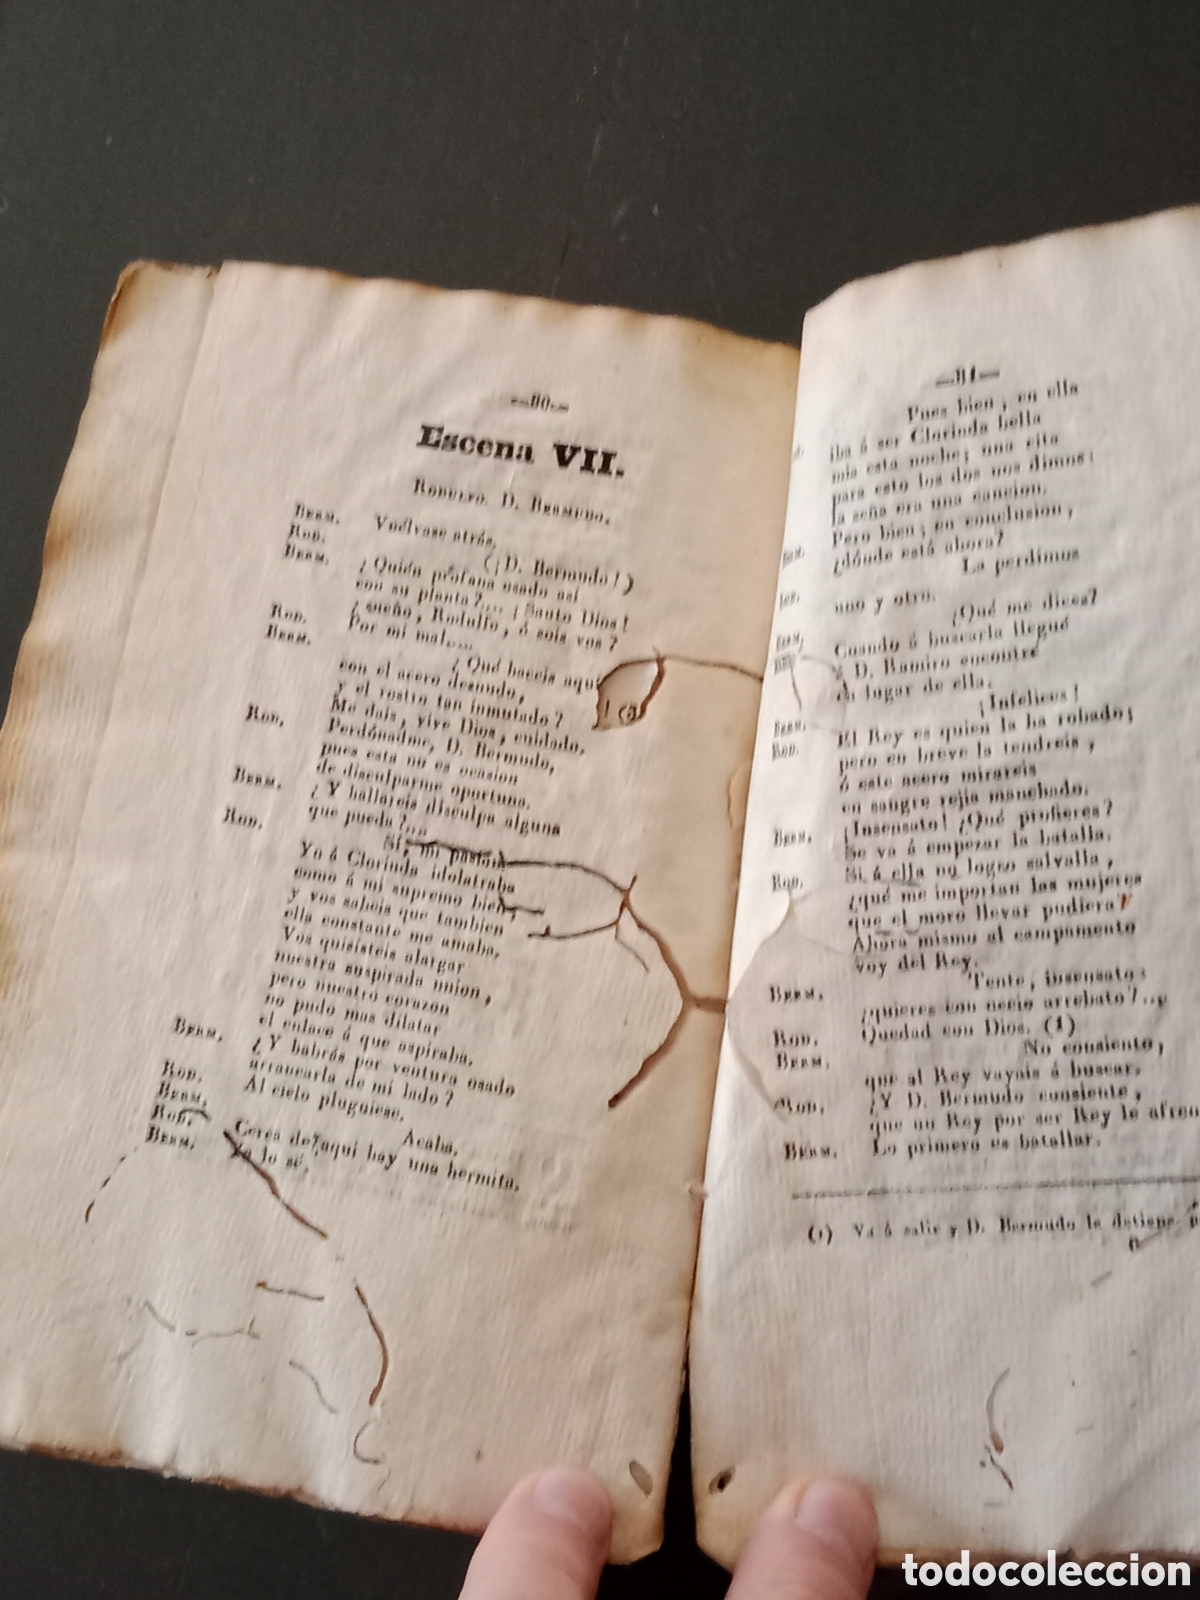 —80.—
Escena VII.
RODULFO. D. BERMUDO.
BERM. Vuélvase atrás.
ROD. (¡D. Bermudo!)
BERM. ¿Quién profana osado así
con su planta?.... ¡Santo Dios!
¿sueño, Rodulfo, ó sois vos?
ROD. Por mi mal....
BERM. ¿Qué haceis aquí
con el acero desnudo,
y el rostro tan inmutado?
Me dais, vive Dios, cuidado,
ROD. Perdónadme, D. Bermudo,
pues esta no es ocasion
de disculparme oportuna.
BERM. ¿Y hallareis disculpa alguna
que pueda?...
ROD. Sí, mi pasion,
Yo á Clorinda idolatraba
como á mi supremo bien,
y vos sabeis que tambien
ella constante me amaba,
Vos quisisteis alargar
nuestra suspirada union,
pero nuestro corazon
no pudo mas dilatar
el enlace á que aspiraba.
BERM. ¿Y habrás por ventura osado
arrancarla de mi lado?
ROD. Al cielo pluguiese.
BERM. Acaba.
ROD. Cerca de aquí hay una hermita.
BERM. Ya lo sé.
! (3)
—81—
Pues bien; en ella
iba á ser Clorinda bella
mia esta noche; una cita
para esto los dos nos dimos:
la seña era una cancion.
Pero bien; en conclusion,
¿dónde está ahora?
La perdimos
uno y otro.
¿Qué me dices?
Cuando á buscarla llegué
á D. Ramiro encontré
en lugar de ella.
BERM. ¡Infelices!
ROD. El Rey es quien la ha robado;
pero en breve la tendreis,
ó este acero mirareis
en sangre rejia manchado.
BERM. ¡Insensato! ¿Qué profieres?
Se va á empezar la batalla.
ROD. Si á ella no logro salvalla,
¿qué me importan las mujeres
que el moro llevar pudiera?
Ahora mismo al campamento
voy del Rey.
BERM. Tente, insensato:
¿quieres con necio arrebato?...
ROD. Quedad con Dios. (1)
BERM. No consiento,
que al Rey vayais á buscar.
ROD. ¿Y D. Bermudo consiente,
que un Rey por ser Rey le afren
BERM. Lo primero es batallar.
(1) Va á salir y D. Bermudo le detiene
todocoleccion